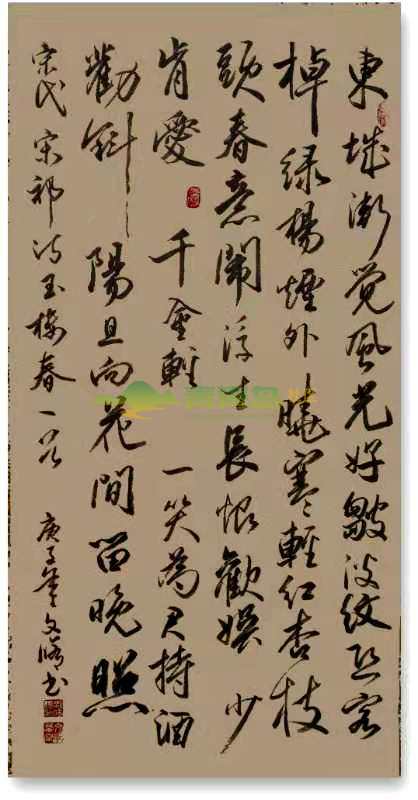 東城漸觉風光好皺波纹迎客
棹绿楊煙外曉寒輕红杏枝
頭春意鬧浮生長恨歡娱少
肯愛千金輕一笑為君持酒
勸斜陽且向花間留晚照
宋代宋祁诗玉楼春一首
庚子年文书